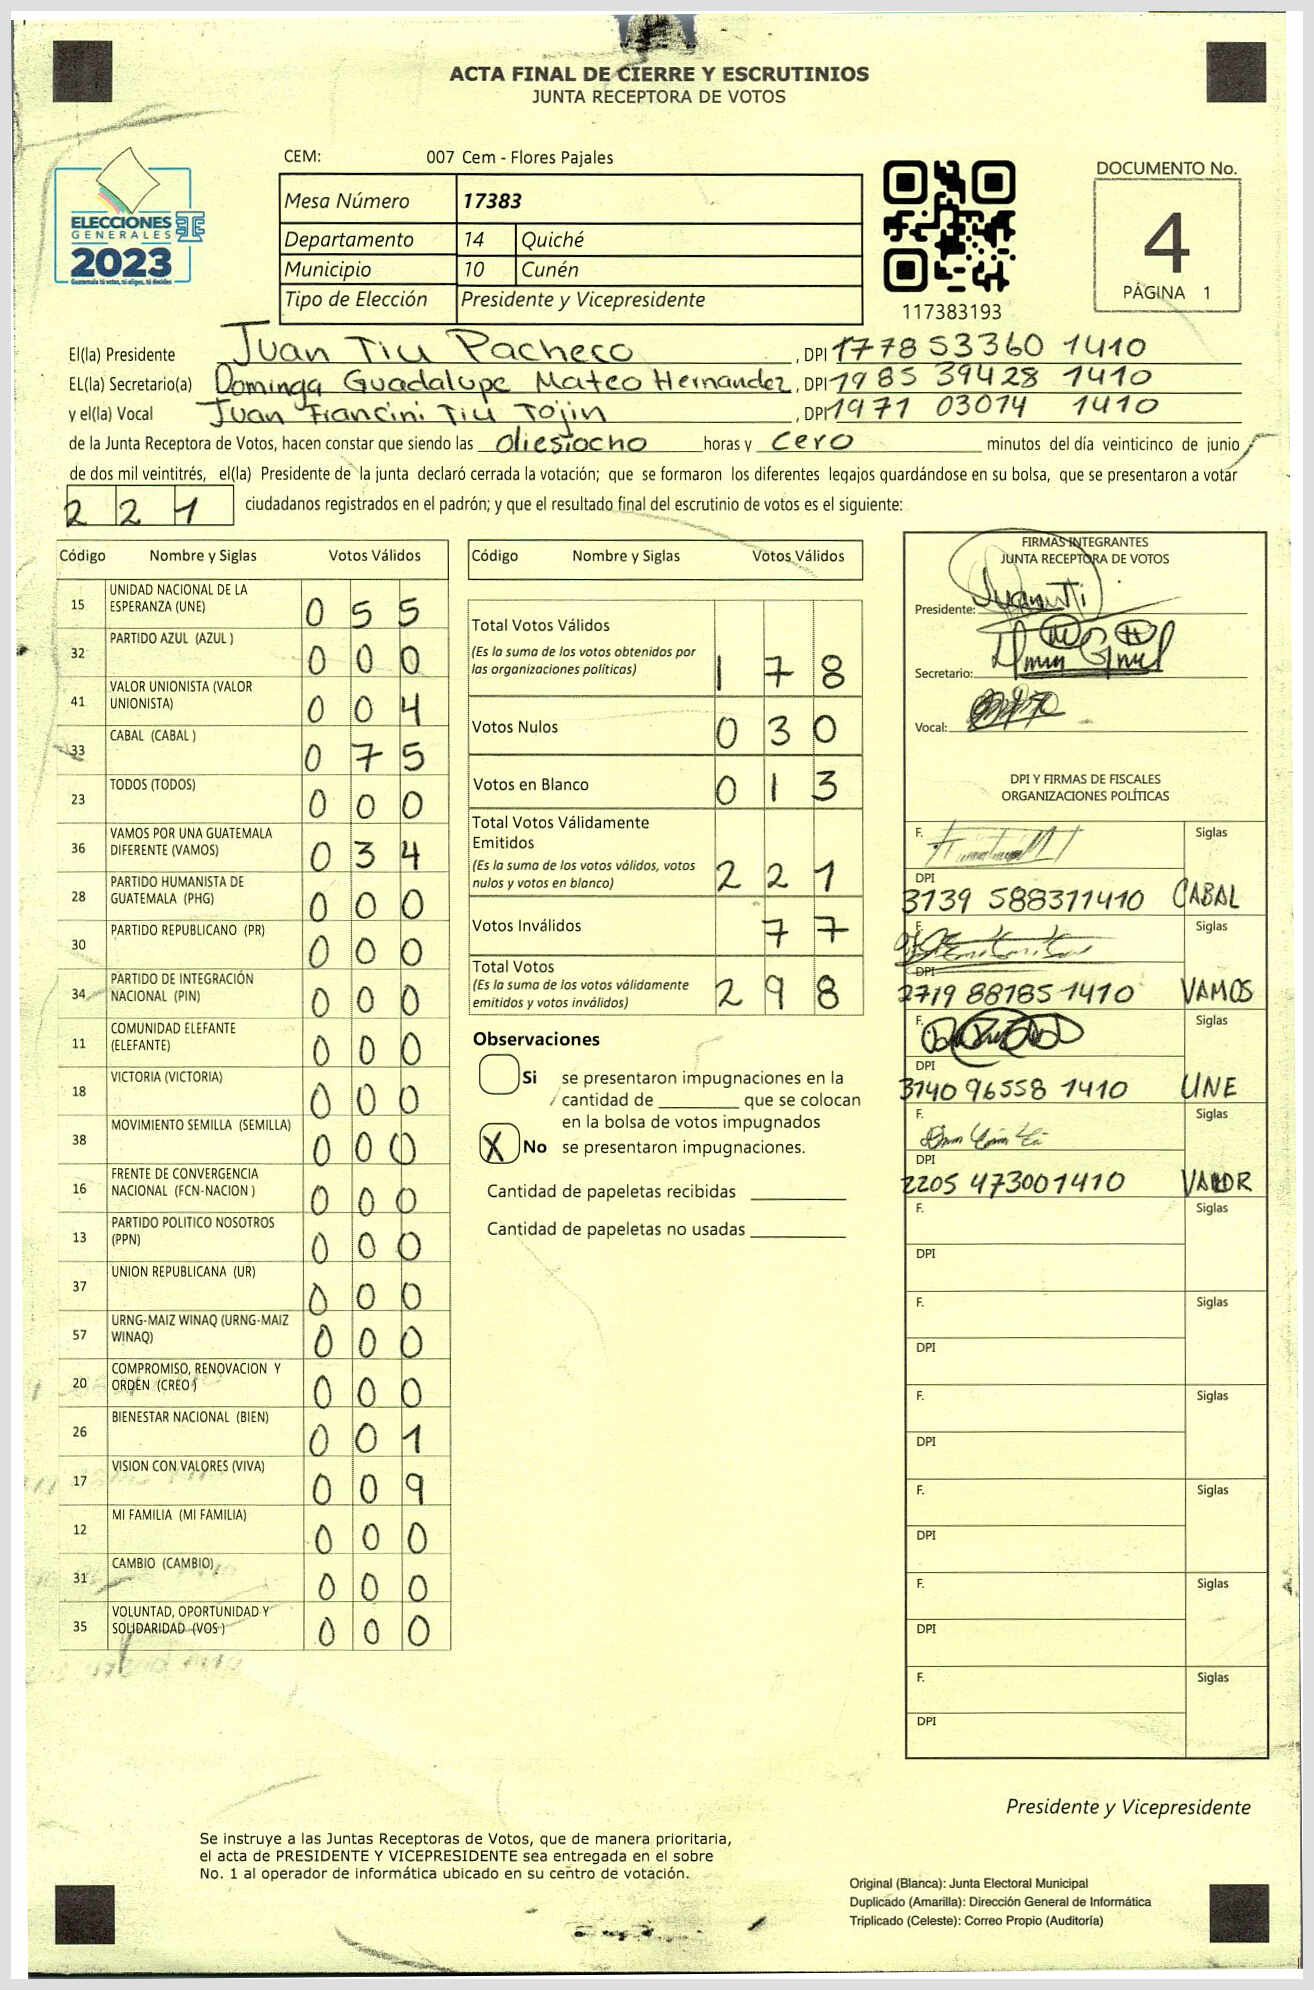 ACTA FINAL DE CIERRE Y ESCRUTINIOS
JUNTA RECEPTORA DE VOTOS
ELECCIONES
GENERALES
2023
Guatemala tú votas, tú eliges, tú decides
CEM: 007 Cem - Flores Pajales
Mesa Número 17383
Departamento 14 Quiché
Municipio 10 Cunén
Tipo de Elección Presidente y Vicepresidente
117383193
DOCUMENTO No.
4
PÁGINA 1
El(la) Presidente Juan Tiu Pacheco, DPI 1778 53360 1410
EL(la) Secretario(a) Dominga Guadalupe Mateo Hernandez, DPI 1985 39428 1410
y el(la) Vocal Juan Francini Tiu Tojin, DPI 1971 03014 1410
de la Junta Receptora de Votos, hacen constar que siendo las diesiocho horas y cero minutos del día veinticinco de junio
de dos mil veintitrés, el(la) Presidente de la junta declaró cerrada la votación; que se formaron los diferentes legajos quardándose en su bolsa, que se presentaron a votar
221 ciudadanos registrados en el padrón; y que el resultado final del escrutinio de votos es el siguiente:
Código Nombre y Siglas Votos Válidos
15 UNIDAD NACIONAL DE LA ESPERANZA (UNE) 0 5 5
32 PARTIDO AZUL (AZUL ) 0 0 0
41 VALOR UNIONISTA (VALOR UNIONISTA) 0 0 4
33 CABAL (CABAL ) 0 7 5
23 TODOS (TODOS) 0 0 0
36 VAMOS POR UNA GUATEMALA DIFERENTE (VAMOS) 0 3 4
28 PARTIDO HUMANISTA DE GUATEMALA (PHG) 0 0 0
30 PARTIDO REPUBLICANO (PR) 0 0 0
34 PARTIDO DE INTEGRACIÓN NACIONAL (PIN) 0 0 0
11 COMUNIDAD ELEFANTE (ELEFANTE) 0 0 0
18 VICTORIA (VICTORIA) 0 0 0
38 MOVIMIENTO SEMILLA (SEMILLA) 0 0 0
16 FRENTE DE CONVERGENCIA NACIONAL (FCN-NACION ) 0 0 0
13 PARTIDO POLITICO NOSOTROS (PPN) 0 0 0
37 UNION REPUBLICANA (UR) 0 0 0
57 URNG-MAIZ WINAQ (URNG-MAIZ WINAQ) 0 0 0
20 COMPROMISO, RENOVACION Y ORDEN (CREO ) 0 0 0
26 BIENESTAR NACIONAL (BIEN) 0 0 1
17 VISION CON VALORES (VIVA) 0 0 9
12 MI FAMILIA (MI FAMILIA) 0 0 0
31 CAMBIO (CAMBIO) 0 0 0
35 VOLUNTAD, OPORTUNIDAD Y SOLIDARIDAD (VOS ) 0 0 0
Código Nombre y Siglas Votos Válidos
Total Votos Válidos
(Es la suma de los votos obtenidos por
las organizaciones políticas) 1 7 8
Votos Nulos 0 3 0
Votos en Blanco 0 1 3
Total Votos Válidamente
Emitidos
(Es la suma de los votos válidos, votos
nulos y votos en blanco) 2 2 1
Votos Inválidos 7 7
Total Votos
(Es la suma de los votos válidamente
emitidos y votos inválidos) 2 9 8
Observaciones
Si se presentaron impugnaciones en la
cantidad de ________ que se colocan
en la bolsa de votos impugnados
X No se presentaron impugnaciones.
Cantidad de papeletas recibidas
Cantidad de papeletas no usadas
FIRMAS INTEGRANTES
JUNTA RECEPTORA DE VOTOS
Presidente:
Secretario:
Vocal:
DPI Y FIRMAS DE FISCALES
ORGANIZACIONES POLÍTICAS
F. Siglas
DPI
3139 588311410 CABAL
F. Siglas
DPI
2719 88785 1410 VAMOS
F. Siglas
DPI
3140 96558 1410 UNE
F. Siglas
DPI
2205 473001410 VALOR
F. Siglas
DPI
F. Siglas
DPI
F. Siglas
DPI
F. Siglas
DPI
F. Siglas
DPI
F. Siglas
DPI
Presidente y Vicepresidente
Se instruye a las Juntas Receptoras de Votos, que de manera prioritaria,
el acta de PRESIDENTE Y VICEPRESIDENTE sea entregada en el sobre
No. 1 al operador de informática ubicado en su centro de votación.
Original (Blanca): Junta Electoral Municipal
Duplicado (Amarilla): Dirección General de Informática
Triplicado (Celeste): Correo Propio (Auditoría)